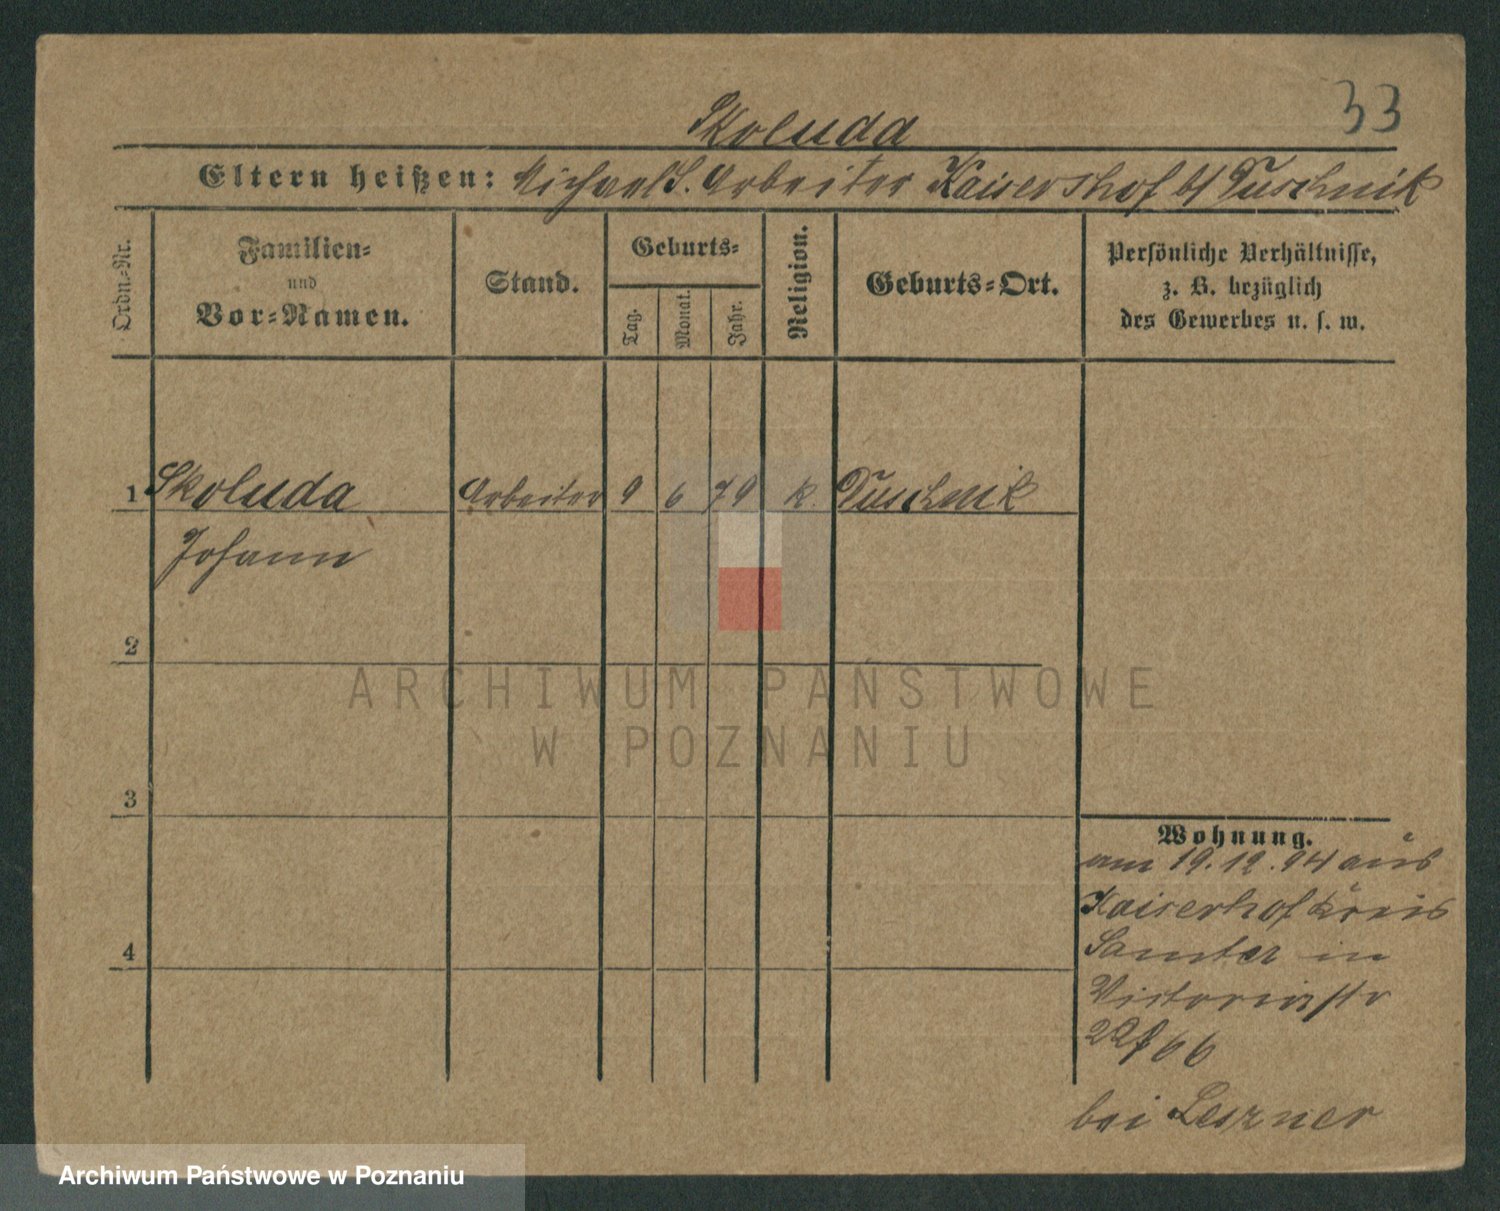 33
Skoluda
Eltern heißen: Michael S. Arbeiter Kaisershof b/ Duschnik
Ordn.-Nr.
Familien-
und
Vor-Namen.
Stand.
Geburts-
Tag.
Monat.
Jahr.
Religion.
Geburts-Ort.
Persönliche Verhältnisse,
z. B. bezüglich
des Gewerbes u. s. w.
1 Skoluda Arbeiter 9 6 79 k. Duschnik
Johann
2
3
4
Wohnung.
am 19.12.94 aus
Kaiserhof Kreis
Samter in
Victoriastr
22/66
bei
ARCHIWUM PAŃSTWOWE
W POZNANIU
Archiwum Państwowe w Poznaniu